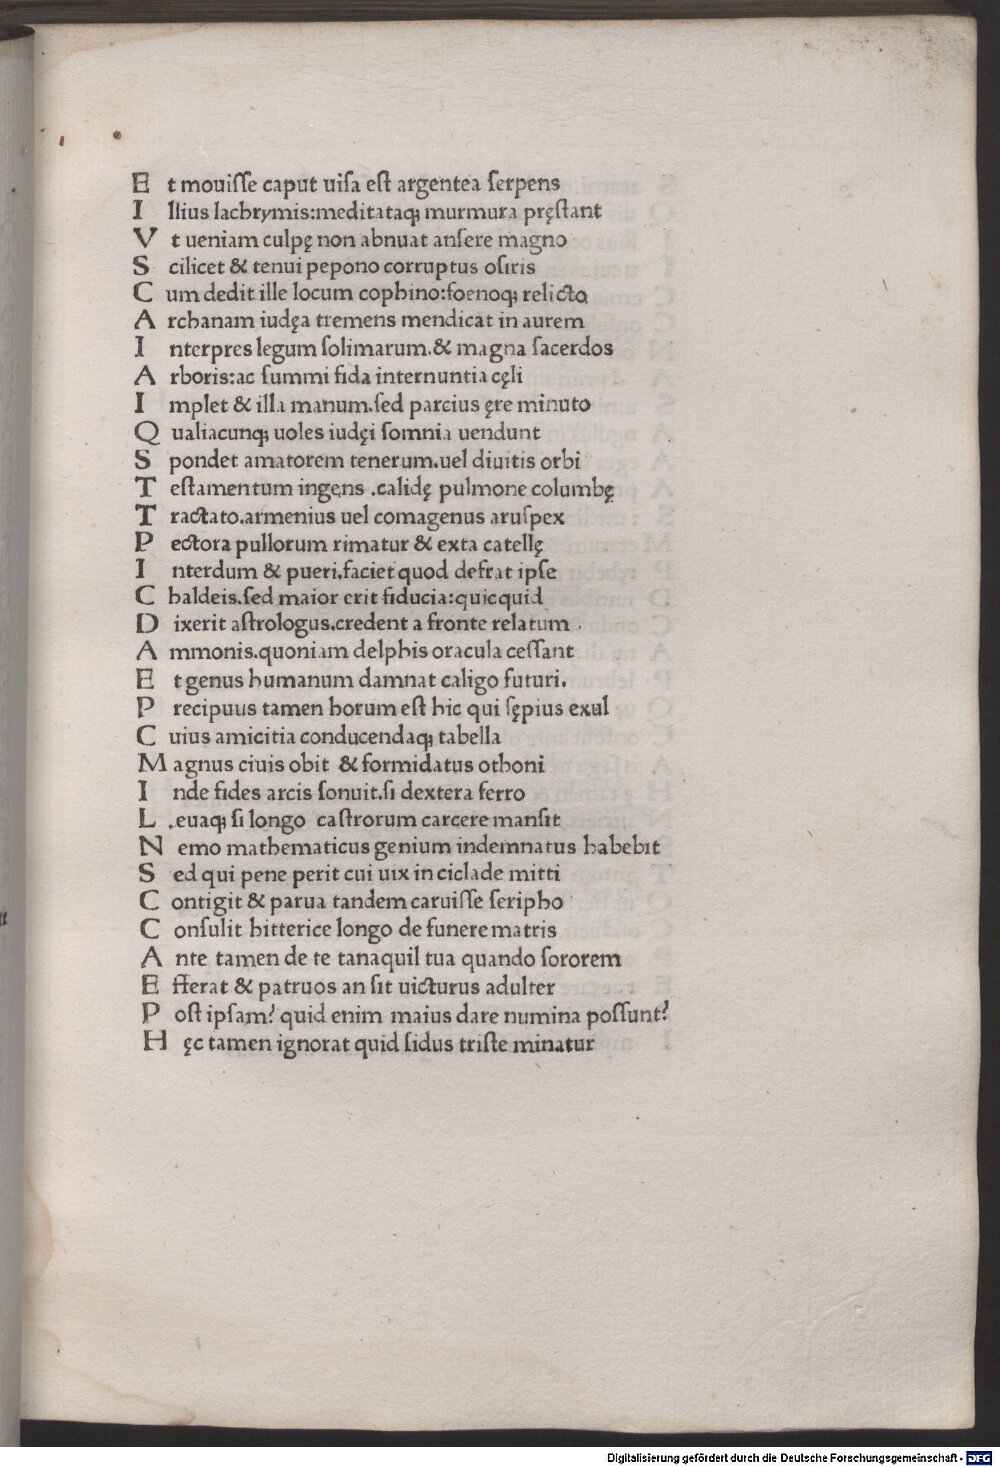 E t mouiſſe caput uiſa eſt argentea ſerpens
I llius lachrymis:meditataq; murmura pręſtant
V t ueniam culpę non abnuat anſere magno
S cilicet & tenui pepono corruptus oſiris
C um dedit ille locum cophino:foenoq; relicto
A rchanam iudęa tremens mendicat in aurem
I nterpres legum ſolimarum.& magna ſacerdos
A rboris:ac ſummi fida internuntia cęli
I mplet & illa manum.ſed parcius ęre minuto
Q ualiacunq; uoles iudęi ſomnia uendunt
S pondet amatorem tenerum.uel diuitis orbi
T eſtamentum ingens .calidę pulmone columbę
T ractato.armenius uel comagenus aruſpex
P ectora pullorum rimatur & exta catellę
I nterdum & pueri.faciet quod defrat ipſe
C haldeis.ſed maior erit fiducia:quicquid
D ixerit aſtrologus.credent a fronte relatum
A mmonis.quoniam delphis oracula ceſſant
E t genus humanum damnat caligo futuri.
P recipuus tamen horum eſt hic qui ſępius exul
C uius amicitia conducendaq; tabella
M agnus ciuis obit & formidatus othoni
I nde fides arcis ſonuit.ſi dextera ferro
L .euaq; ſi longo caſtrorum carcere manſit
N emo mathematicus genium indemnatus habebit
S ed qui pene perit cui uix in ciclade mitti
C ontigit & parua tandem caruiſſe ſeripho
C onſulit hitterice longo de funere matris
A nte tamen de te tanaquil tua quando ſororem
E fferat & patruos an ſit uicturus adulter
P oſt ipſam? quid enim maius dare numina poſſunt?
H ęc tamen ignorat quid ſidus triſte minatur
Digitalisierung gefördert durch die Deutsche Forschungsgemeinschaft - DFG